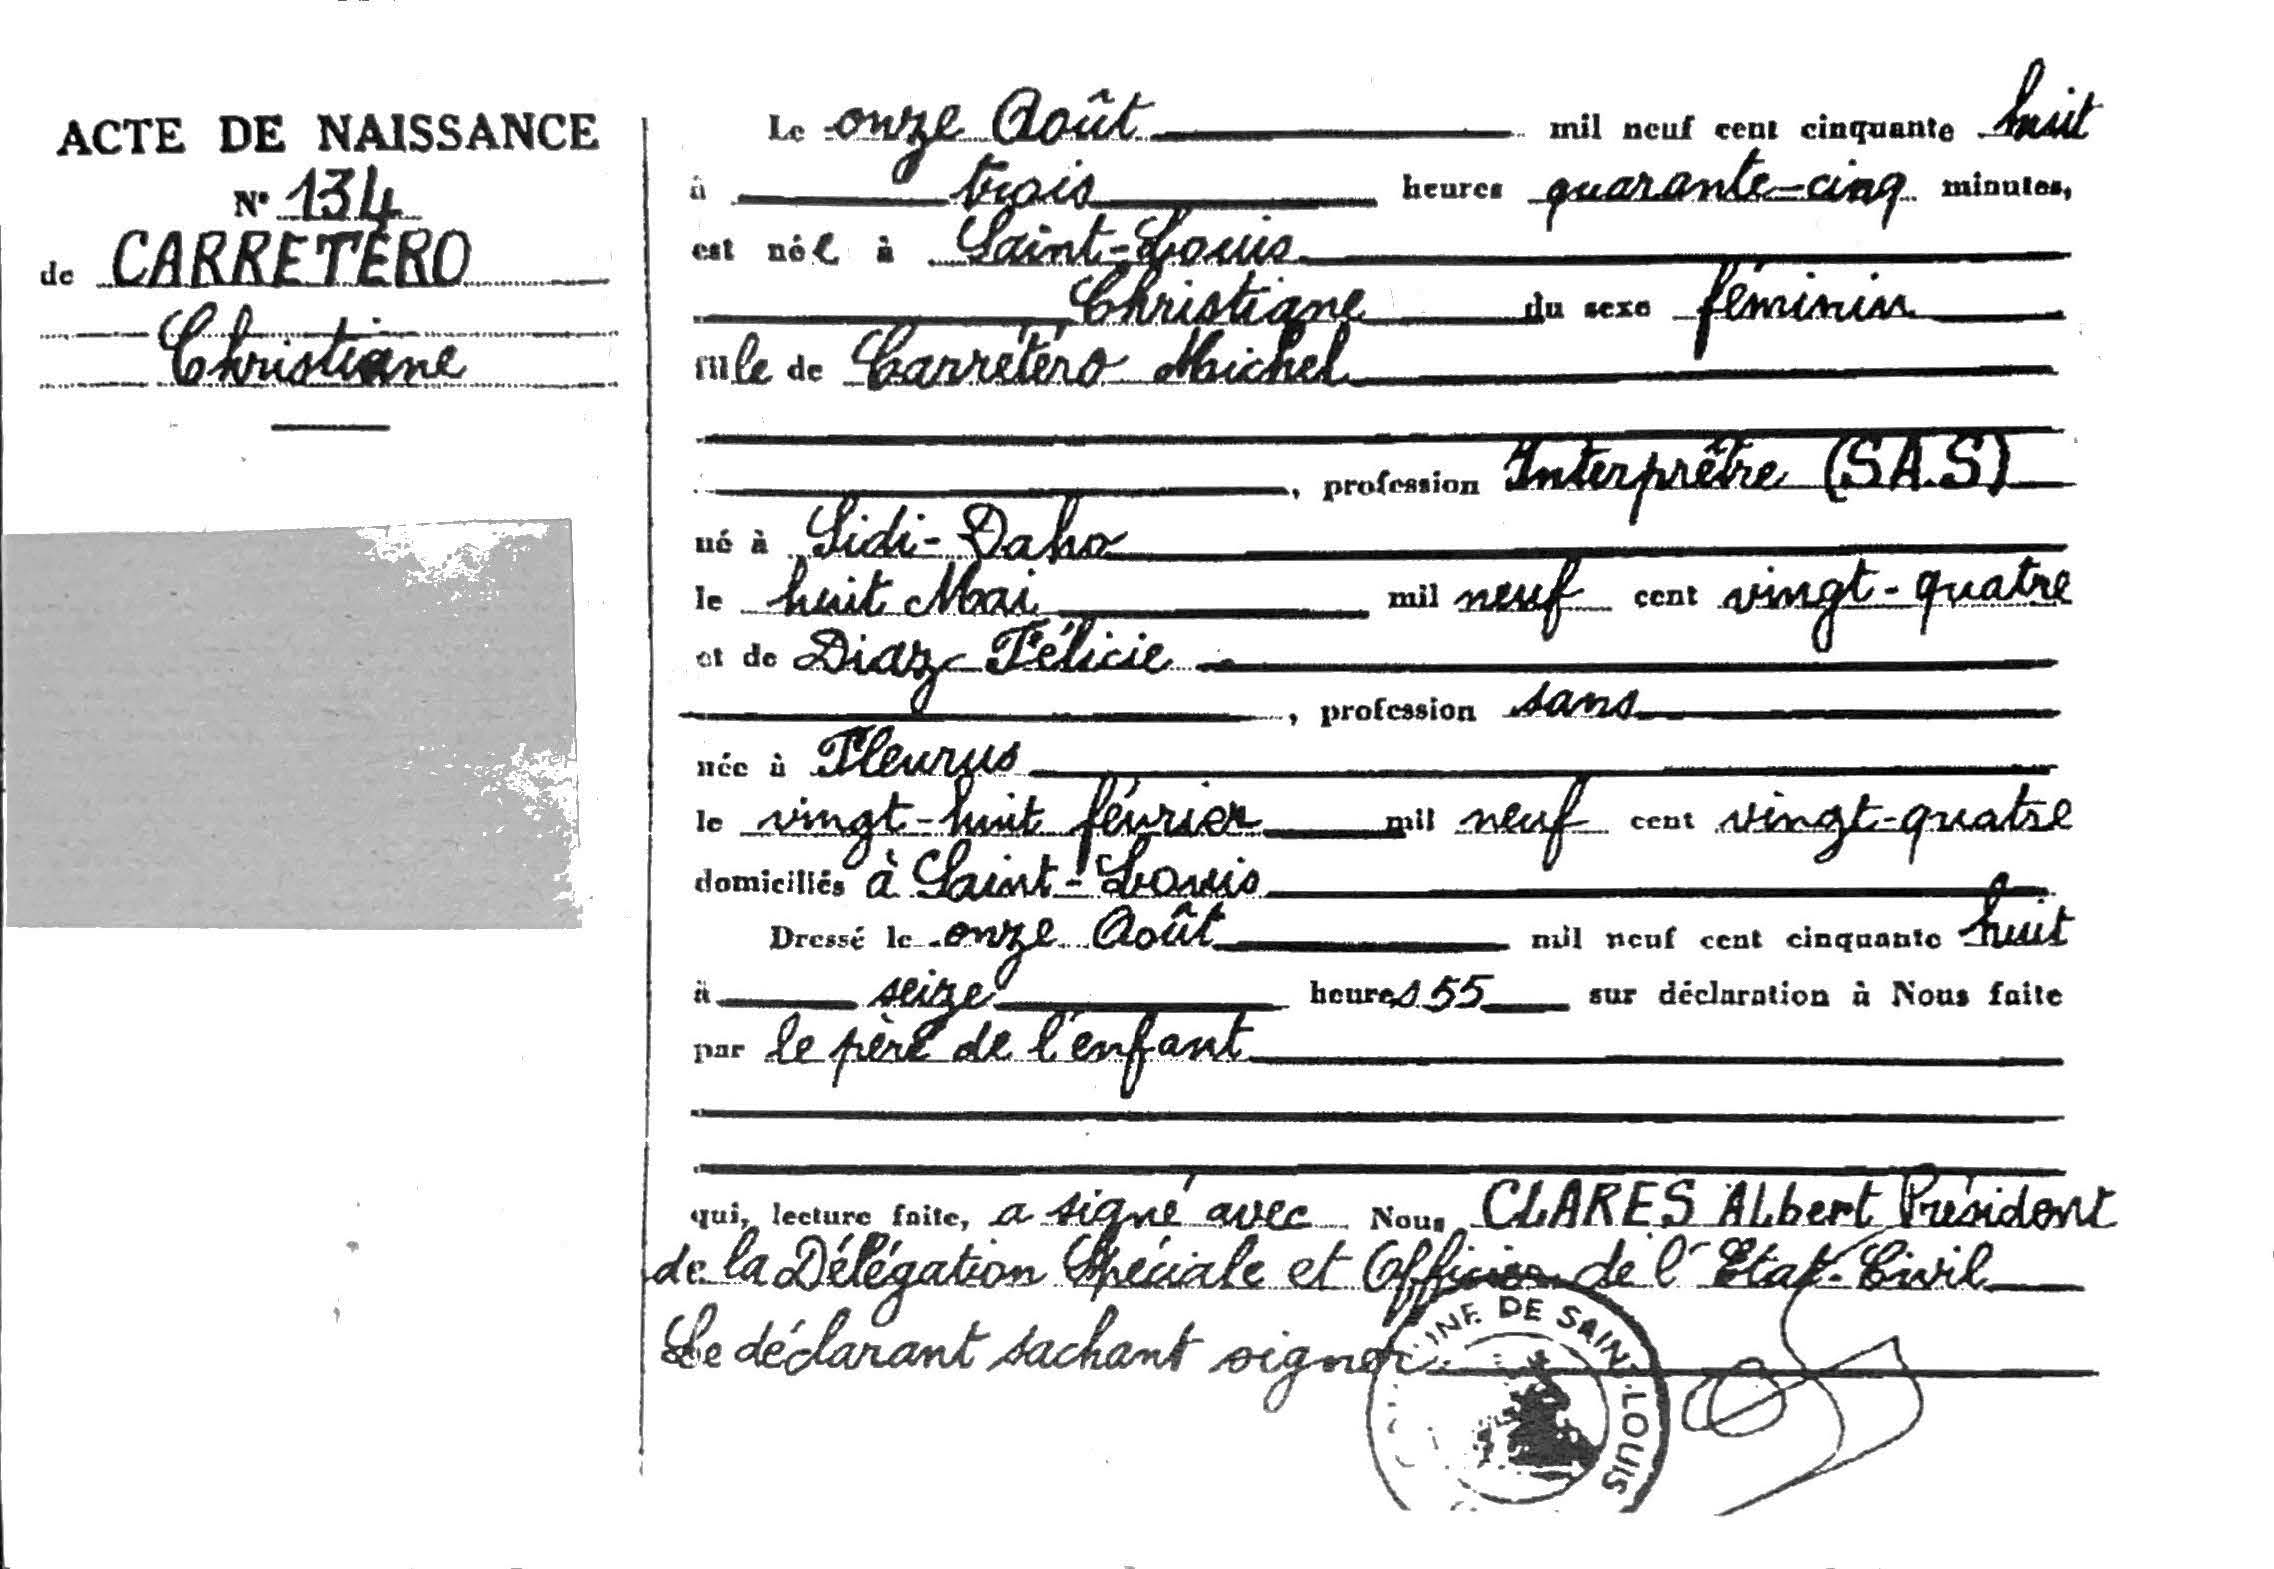 ACTE DE NAISSANCE
N° 134
de CARRETÉRO
Christiane
Le onze Août mil neuf cent cinquante huit
à trois heures quarante-cinq minutes,
est née à Saint-Louis
Christiane du sexe féminin
fille de Carrétéro Michel
, profession Interprêtre (S.A.S)
né à Sidi-Daho
le huit Mai mil neuf cent vingt-quatre
et de Diaz Félicie
, profession sans
née à Fleurus
le vingt-huit février mil neuf cent vingt-quatre
domiciliés à Saint-Louis
Dressé le onze Août mil neuf cent cinquante huit
à seize heures 55 sur déclaration à Nous faite
par le père de l'enfant
qui, lecture faite, a signé avec Nous CLARES Albert Président
de la Délégation Spéciale et Officier de l'Etat-Civil
Le déclarant sachant signer.
DE SAINT-LOUIS